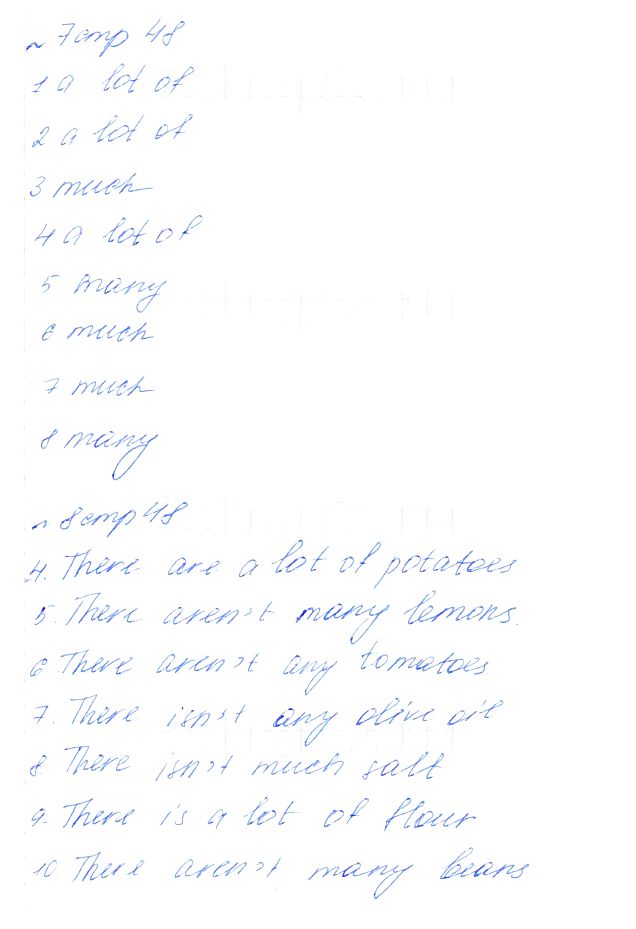 ~ 7 стр 48
1 a lot of
2 a lot of
3 much
4 a lot of
5 many
6 much
7 much
8 many
~ 8 стр 48
4. There are a lot of potatoes
5. There aren't many lemons.
6 There aren't any tomatoes
7. There isn't any olive oil
8. There isn't much salt
9. There is a lot of flour
10. There aren't many beans